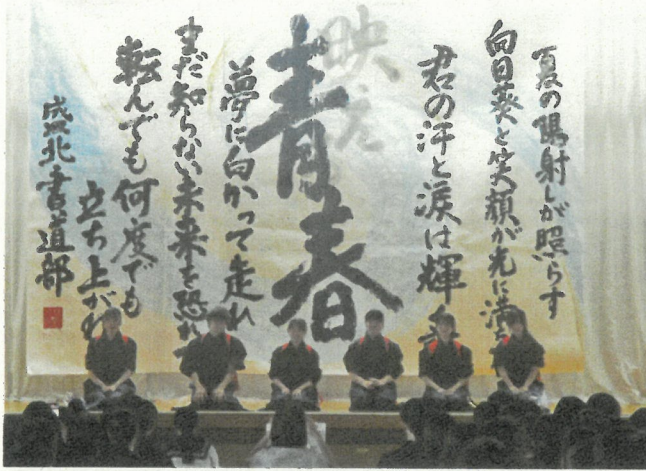 夏の陽射しが照らす
向日葵と笑顔が光に満ち
君の汗と涙は輝
映え
青春
夢に向かって走れ
まだ知らない未来を恐れ
転んでも何度でも
立ち上がれ
盛北書道部